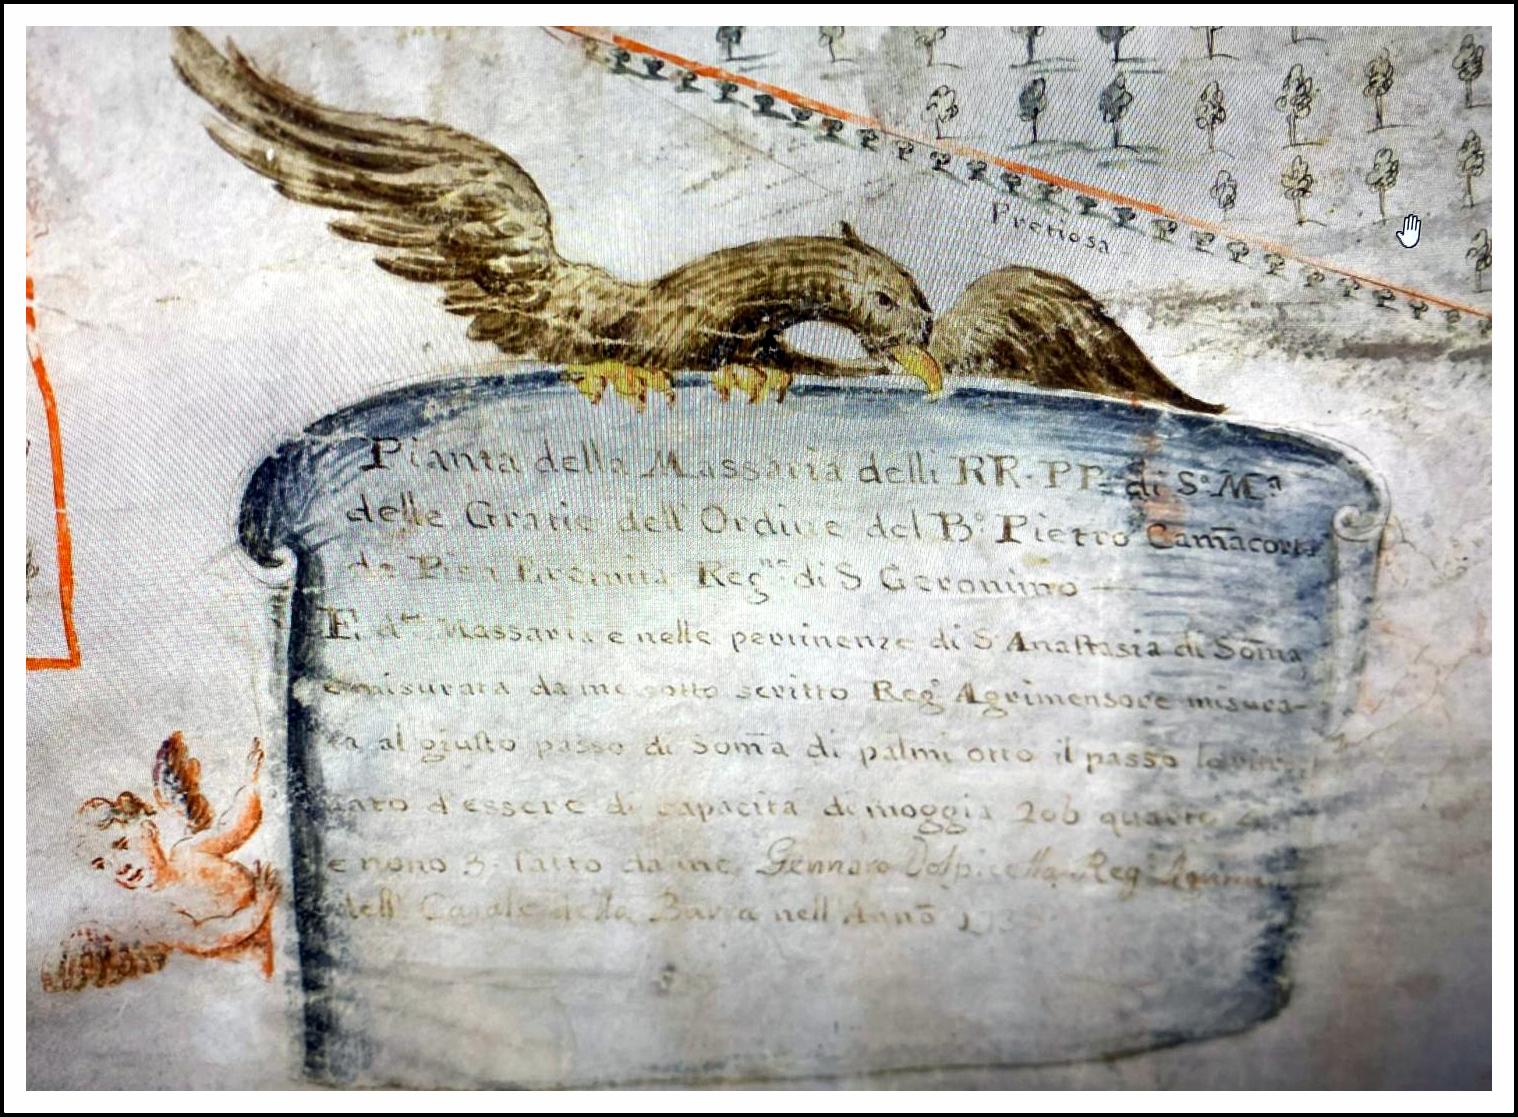 Pretiosa
Pianta della Massaria delli RR. PP. di S.ª M.ª
delle Gratie dell'Ordine del B.º Pietro Gam̄acorta
da Pisa Eremita Reg.ne di S. Geronimo
E. d.ta Massaria e nelle pertinenze di S. Anastasia di Som̄a,
e misurata da me sotto scritto Reg.º Agrimensore misura-
ta al giusto passo di Som̄a di palmi otto il passo
d'essere di capacità di moggia 206 quarte
e nono 3. fatto da me Gennaro Volpicella Reg.
dell' Casale della Barra nell' Annō